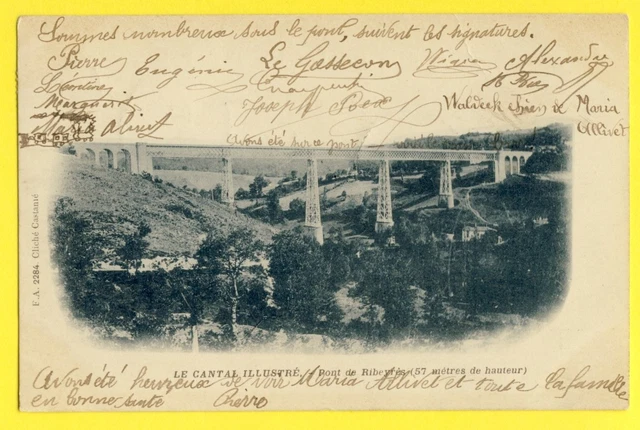 Sommes nombreux sous le pont, suivent les signatures.
Pierre Eugénie Le Gassecon Alexandre
Léontine
Marguerit
Joseph Waldeck chien de Maria
Maria Alivet Allivet
Avons été sur ce pont
F.A. 2284 Cliché Castanié
LE CANTAL ILLUSTRÉ. - Pont de Ribeyrès (57 mètres de hauteur)
Avons été heureux de voir Maria Allivet et toute la famille
en bonne santé